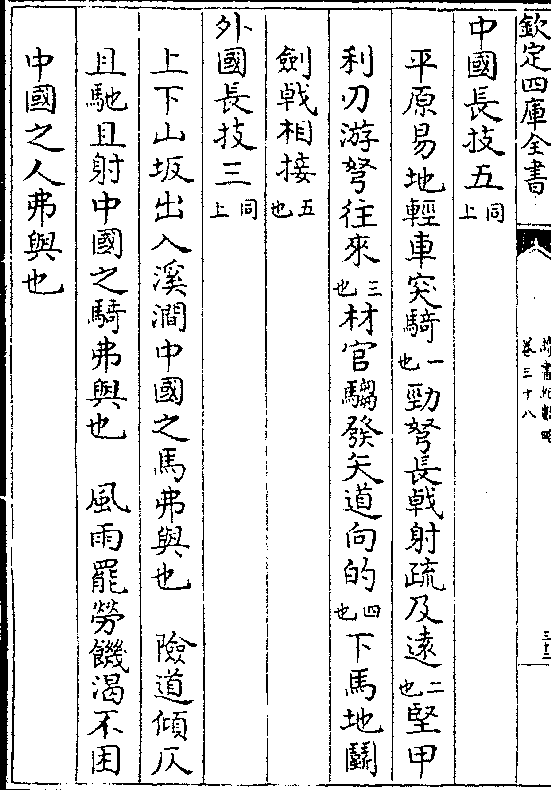 欽定四庫全書
卷三十八
中國長技五同上
平原易地輕車突騎一也勁弩長戟射疏及逺二也堅甲
利刃游弩往來三也材官騶發矢道向的四也下馬地鬭
劍戟相接五也
外國長技三同上
上下山坂出入溪澗中國之馬弗與也 險道傾仄
且馳且射中國之騎弗與也 風雨罷勞饑渴不困
中國之人弗與也